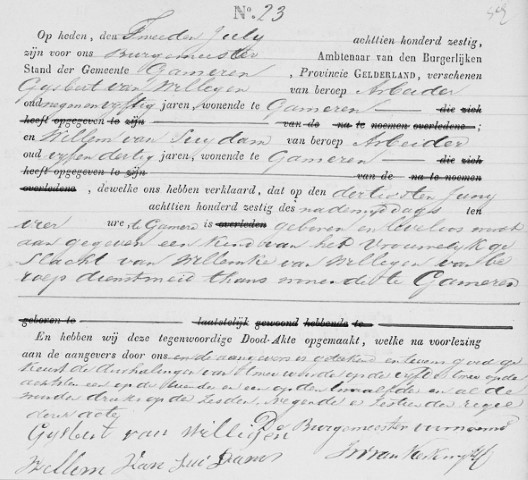 No. 23
Op heden, den Tweeden July achttien honderd zestig,
zijn voor ons Burgemeester Ambtenaar van den Burgerlijken
Stand der Gemeente Gameren, Provincie GELDERLAND, verschenen
Gijsbert van Willegen van beroep Arbeider
oud negenenvijftig jaren, wonende te Gameren die zich
heeft opgegeven te zijn van de na te noemen overledene;
en Willem van Suydam van beroep Arbeider
oud vijfendertig jaren, wonende te Gameren die zich
heeft opgegeven te zijn van de na te noemen
overledene, dewelke ons hebben verklaard, dat op den dertigsten Juny
achttien honderd zestig des nademiddags ten
vier ure te Gameren is overleden geboren en levenloos
aan gegeven een kind van het Vrouwelijk ge
slacht van Willemke van Willegen van be
roep dienstmeid thans wonende te Gameren
geboren te laatstelijk gewoond hebbende te
En hebben wij deze tegenwoordige Dood-Akte opgemaakt, welke na voorlezing
aan de aangevers door ons en de aangevers is getekend en
keurt de doorhalingen van
op de en een op den twaalfde en al de
op de zesden, negende
dezer acte
Gijsbert van Willigen De Burgemeester voornoemd
Willem van